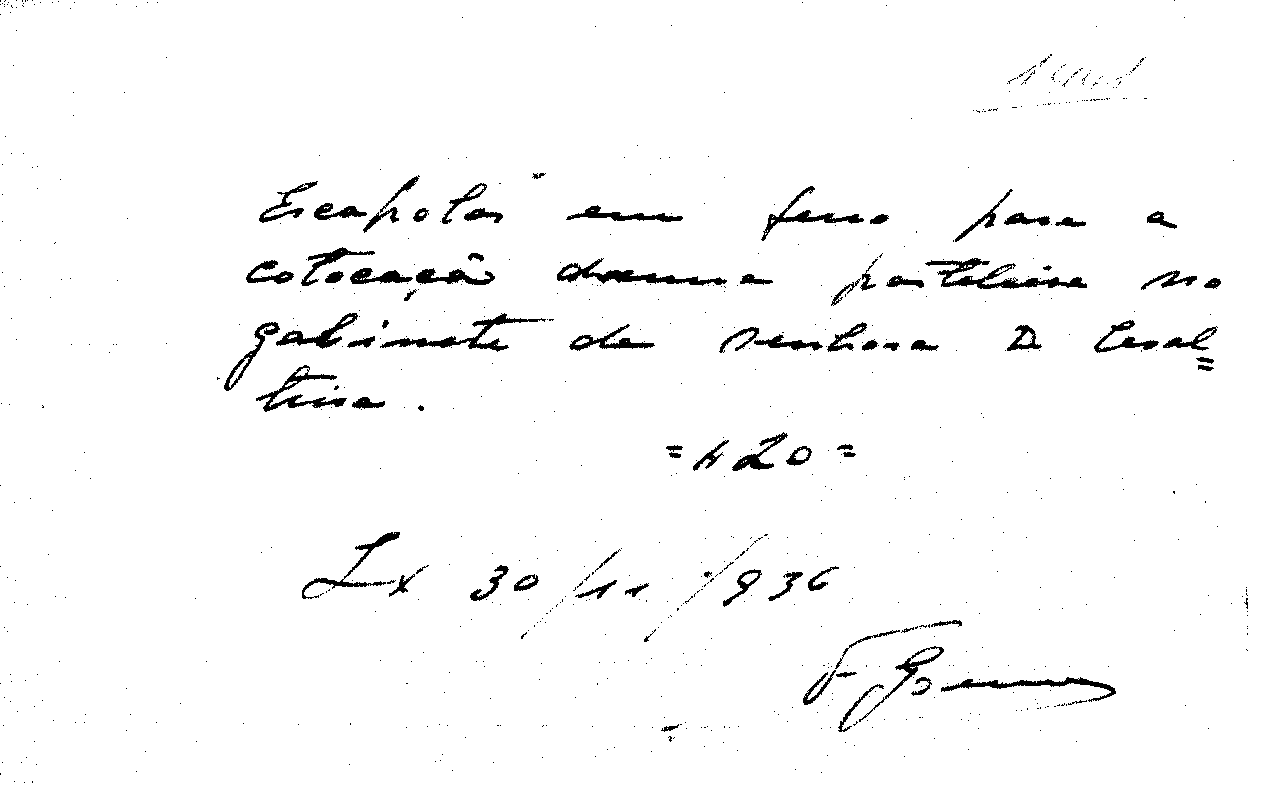 Escapolas em ferro para a
colocação duma parteleira no
gabinete da senhora D Cesal=
tina.
=120=
Lx 30/11/936
F Gomes